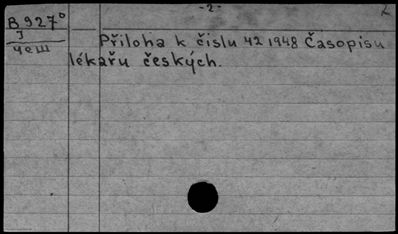 -2-
B 927°
3
чеш
Příloha k čislu 42 1948 Časopisu
lékařu českých.